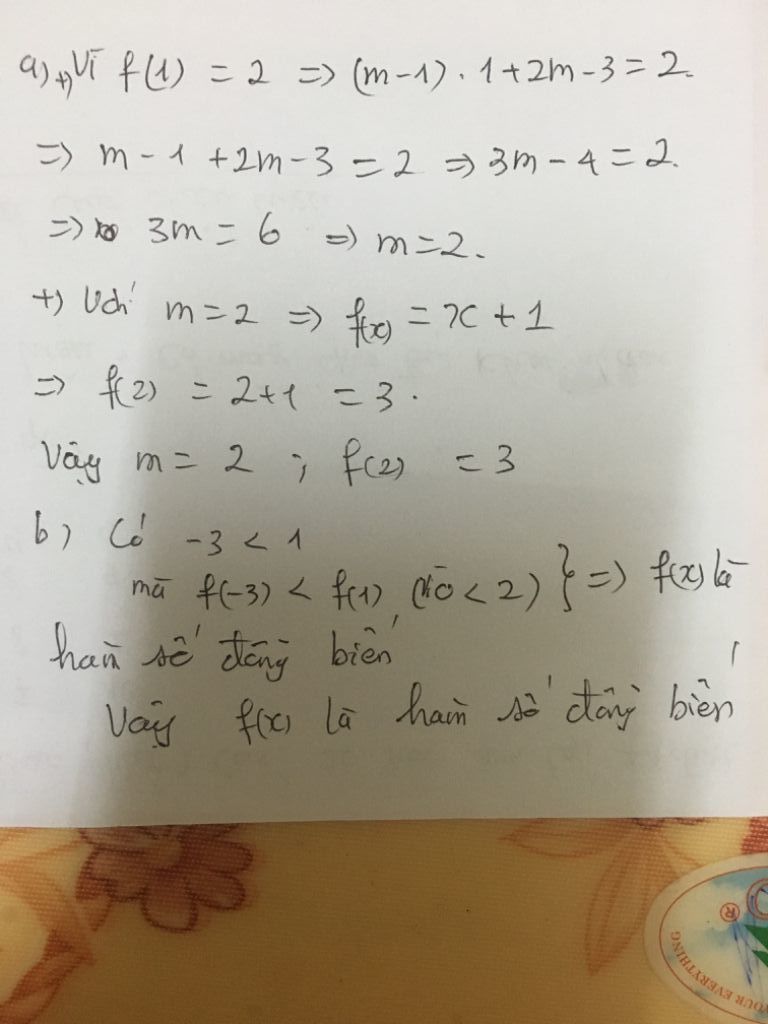 a) +) Vì f(1) = 2 => (m-1).1+2m-3=2.
=> m-1+2m-3=2 => 3m-4=2.
=> 3m=6 => m=2.
+) Với m=2 => f(x) = x+1
=> f(2) = 2+1 = 3.
Vậy m=2 ; f(2) = 3
b) Có -3 < 1
mà f(-3) < f(1) (0<2) } => f(x) là
hàm số đồng biến
Vậy f(x) là hàm số đồng biến
YOUR EVERYTHING
®